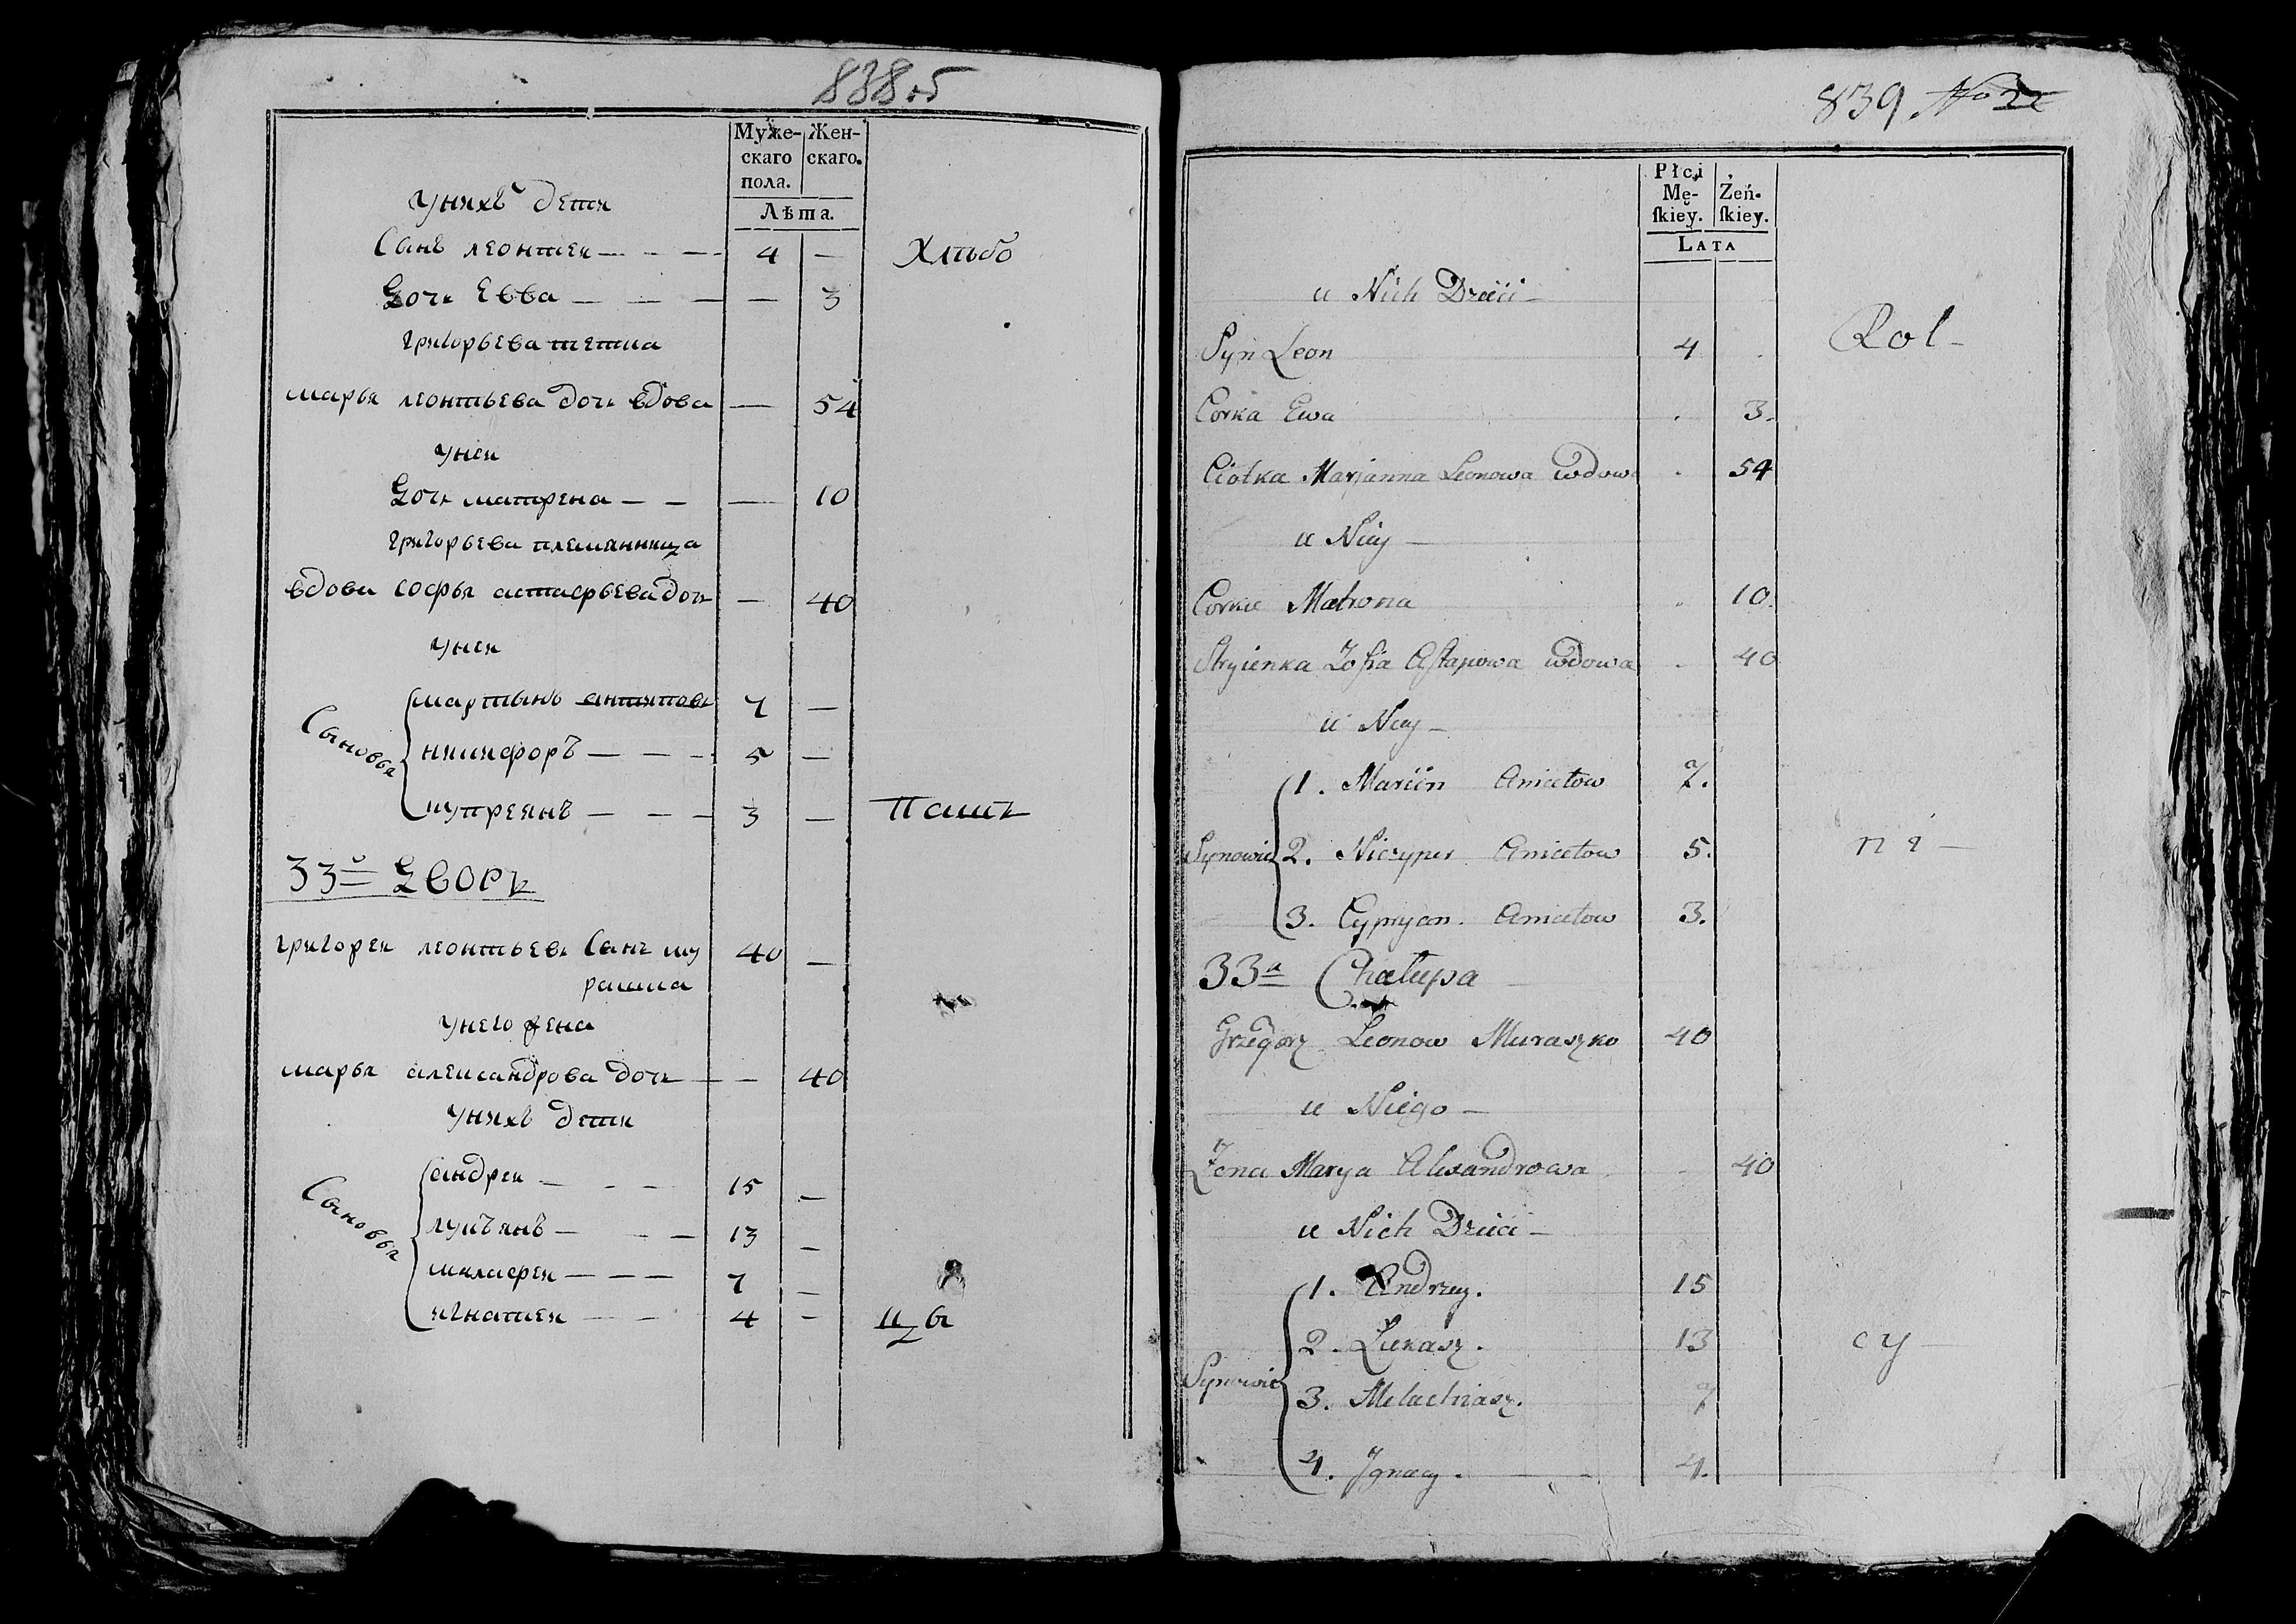 838.5
Муже-
скаго
пола.
Жен-
скаго.
Лѣта.
Унихъ дети
Сынъ леонтеи — — — 4 — Хлѣбо
Дочь Евва — — — — 3
григорьева тетка
марья леонтьева дочь вдова — 54
Унеи
Дочь матрена — — — 10
григорьева племянница
вдова софья астафьева дочь — 40
Унеи
Сыновья
мартынъ 7 —
никифоръ — — — 5 —
купреянъ — — — 3 — Паш
33й Дворъ
григореи леонтьевъ сынъ му
рашка 40 —
Унего жена
марья александрова дочь — — 40
Унихъ дети
Сыновья
андреи — — — 15 —
лукъянъ — — — 13 —
малафеи — — — 7 —
игнатеи — — 4 — цы
839 No 22
Płci
Mę-
ſkiey.
Żeń-
ſkiey.
Lata
u Nich Dzieci —
Syn Leon 4 . Rol —
Corka Ewa . 3.
Ciotka Marjanna Leonowa wdowa . 54
u Niey —
Corka Matrona . 10.
Stryienka Zofia Aſtapowa wdowa . 40
u Niey —
Synowie
1. Marcin Anicetow 7.
2. Niczyper Anicetow 5. ni —
3. Cypryan. Anicetow 3.
33a Chałupa
Grzegorz Leonow Muraszko 40
u Niego —
Żona Marya Alexandrowa 40
u Nich Dzieci —
Synowie
1. Andrzey. 15
2. Łukasz. 13 cy —
3. Melachiasz. 7
4. Jgnacy. 4.